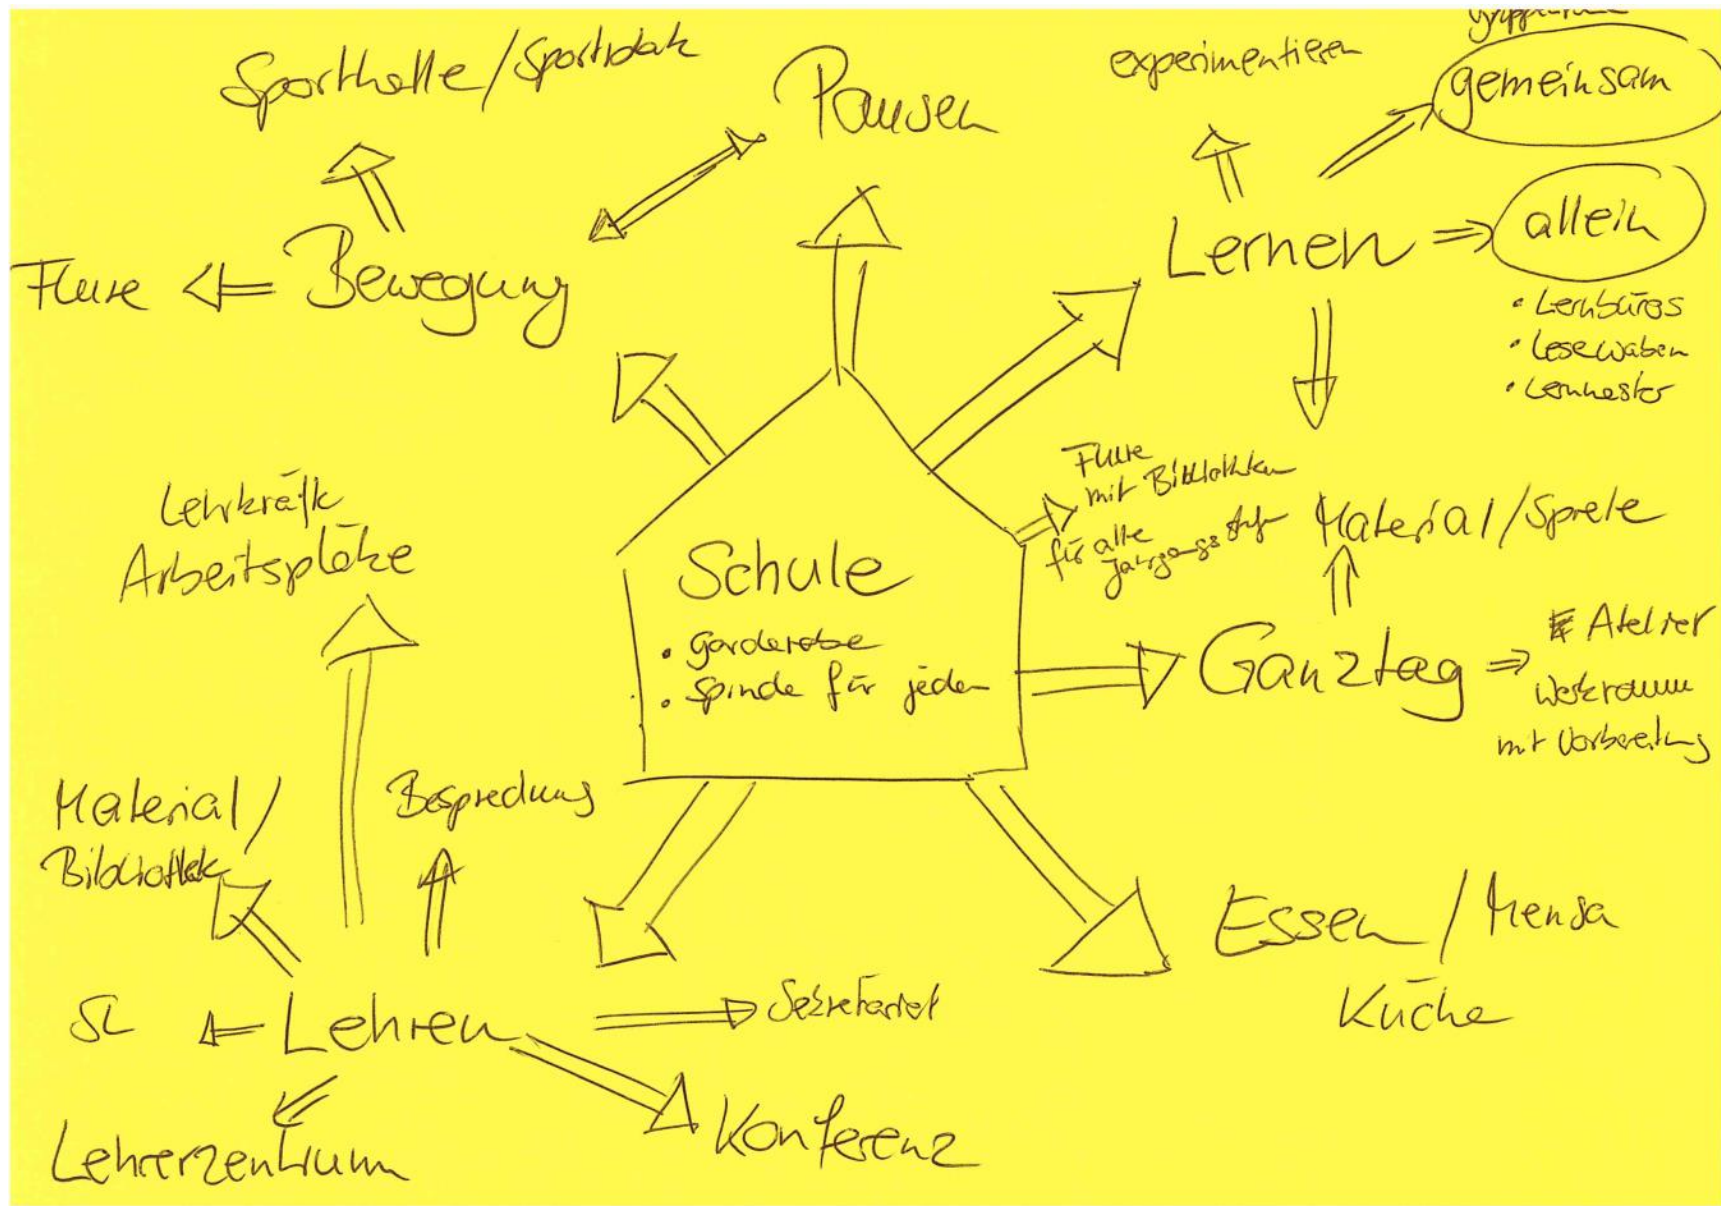 Sporthalle/Sportplatz
Pausen
experimentieren
gemeinsam
Flure
Bewegung
Lernen
allein
• Lernbüros
• Lesewaben
• Lernnester
Lehrkräfte
Arbeitsplätze
Flure
mit Bibliotheken
für alle
Jahrgangsstufen
Material/Spiele
Schule
• Garderobe
• Spinde für jeden
Ganztag
Atelier
Werkraum
mit Vorbereitung
Material/
Bibliothek
Besprechung
Essen/Mensa
Küche
SL
Lehren
Sekretariat
Lehrerzentrum
Konferenz